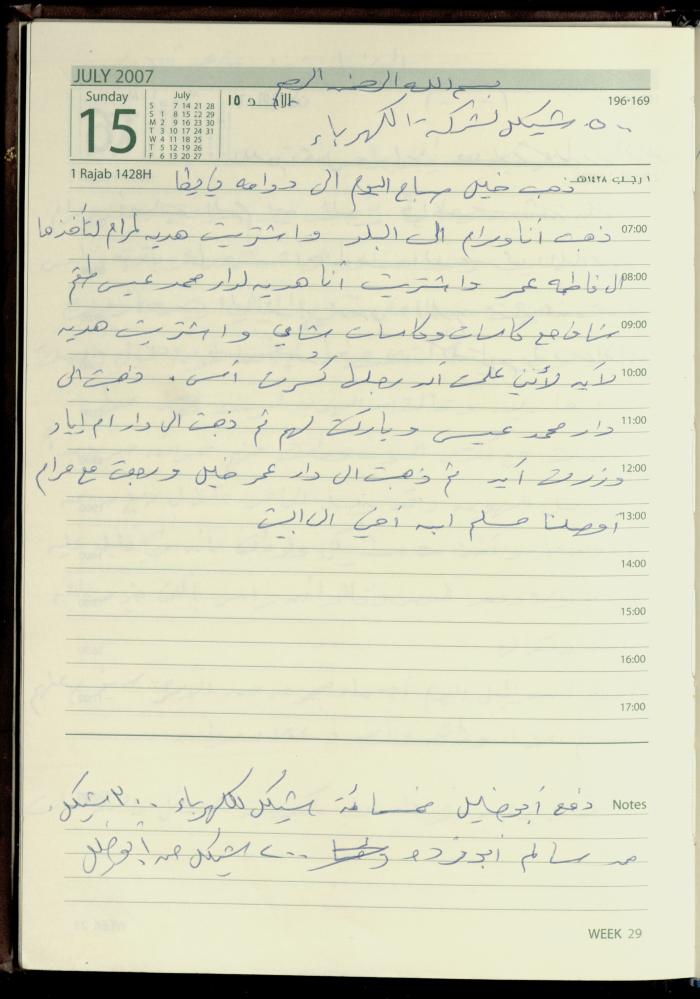 JULY 2007
بسم الله الرحمن الرحيم
Sunday
15
July
S 7 14 21 28
S 1 8 15 22 29
M 2 9 16 23 30
T 3 10 17 24 31
W 4 11 18 25
T 5 12 19 26
F 6 13 20 27
الأحد ١٥
196-169
٥٠٠ شيكل لشركة الكهرباء
1 Rajab 1428H
١ رجب ١٤٢٨هـ
ذهب خليل صباح اليوم الى دوامه
07:00 ذهبت أنا ومرام الى البلد واشتريت هديه لمرام لتأخذها
08:00 الى فاطمه عمر واشتريت أنا هديه لدار محمد عيسى طقم
09:00 مع كاسات وكاسات شاي واشتريت هديه
10:00 لآيه لأنني علمت أن رجلها كُسرت أمس. ذهبت الى
11:00 دار محمد عيسى وباركت لهم ثم ذهبت الى دار ام اياد
12:00 وزرت آيه ثم ذهبت الى دار عمر خليل ورجعت مع مرام
13:00 أوصلنا مسلم ابن أخي الى البيت
14:00
15:00
16:00
17:00
Notes
دفع أبو خليل خمسمائة شيكل للكهرباء ٣٠٠ شيكل
من سالم أبو فرده ٢٠٠ شيكل من أبو خليل
WEEK 29